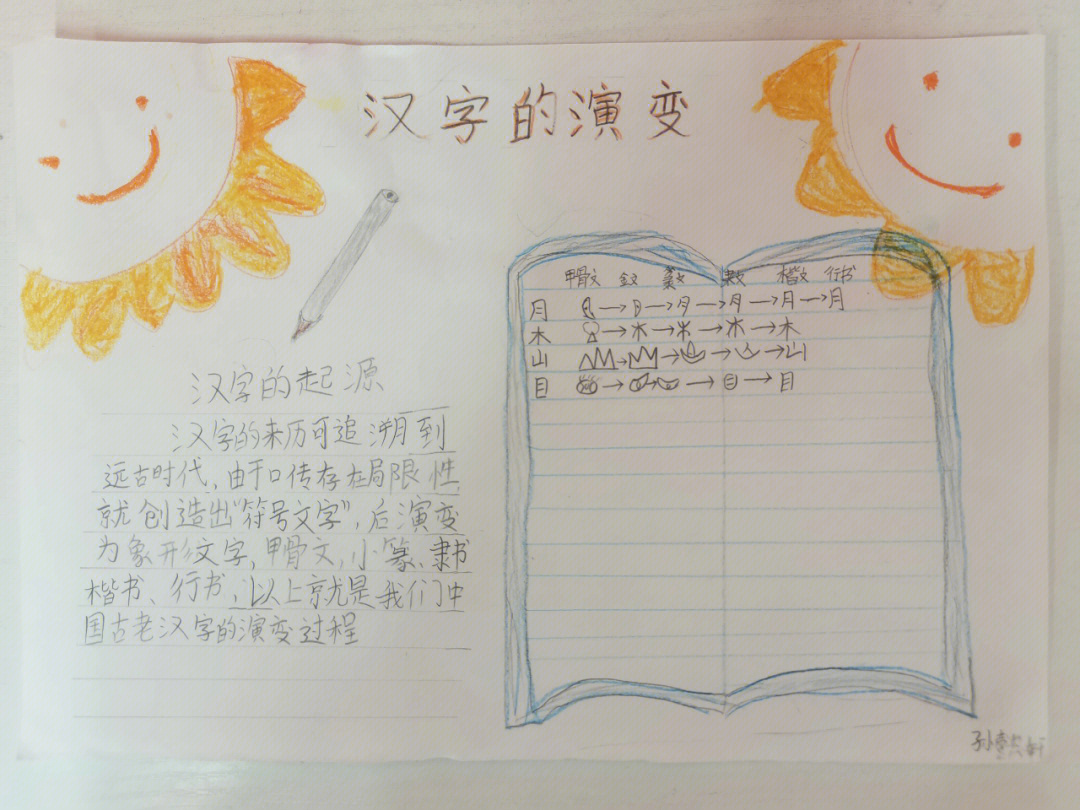 汉字的演变
汉字的起源
汉字的来历可追溯到
远古时代,由于口传存在局限性
就创造出“符号文字”,后演变
为象形文字,甲骨文,小篆、隶书
楷书、行书,以上就是我们中
国古老汉字的演变过程
甲骨文 金文 篆文 隶文 楷文 行书
月 →→月→月→月→月
木 →木→木→木→木
山 →→→→山
目 →→→目→目